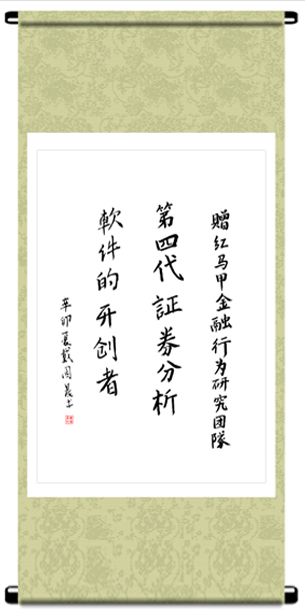 贈红马甲金融行为研究团隊
第四代証券分析
軟件的开创者
辛卯夏戴园晨